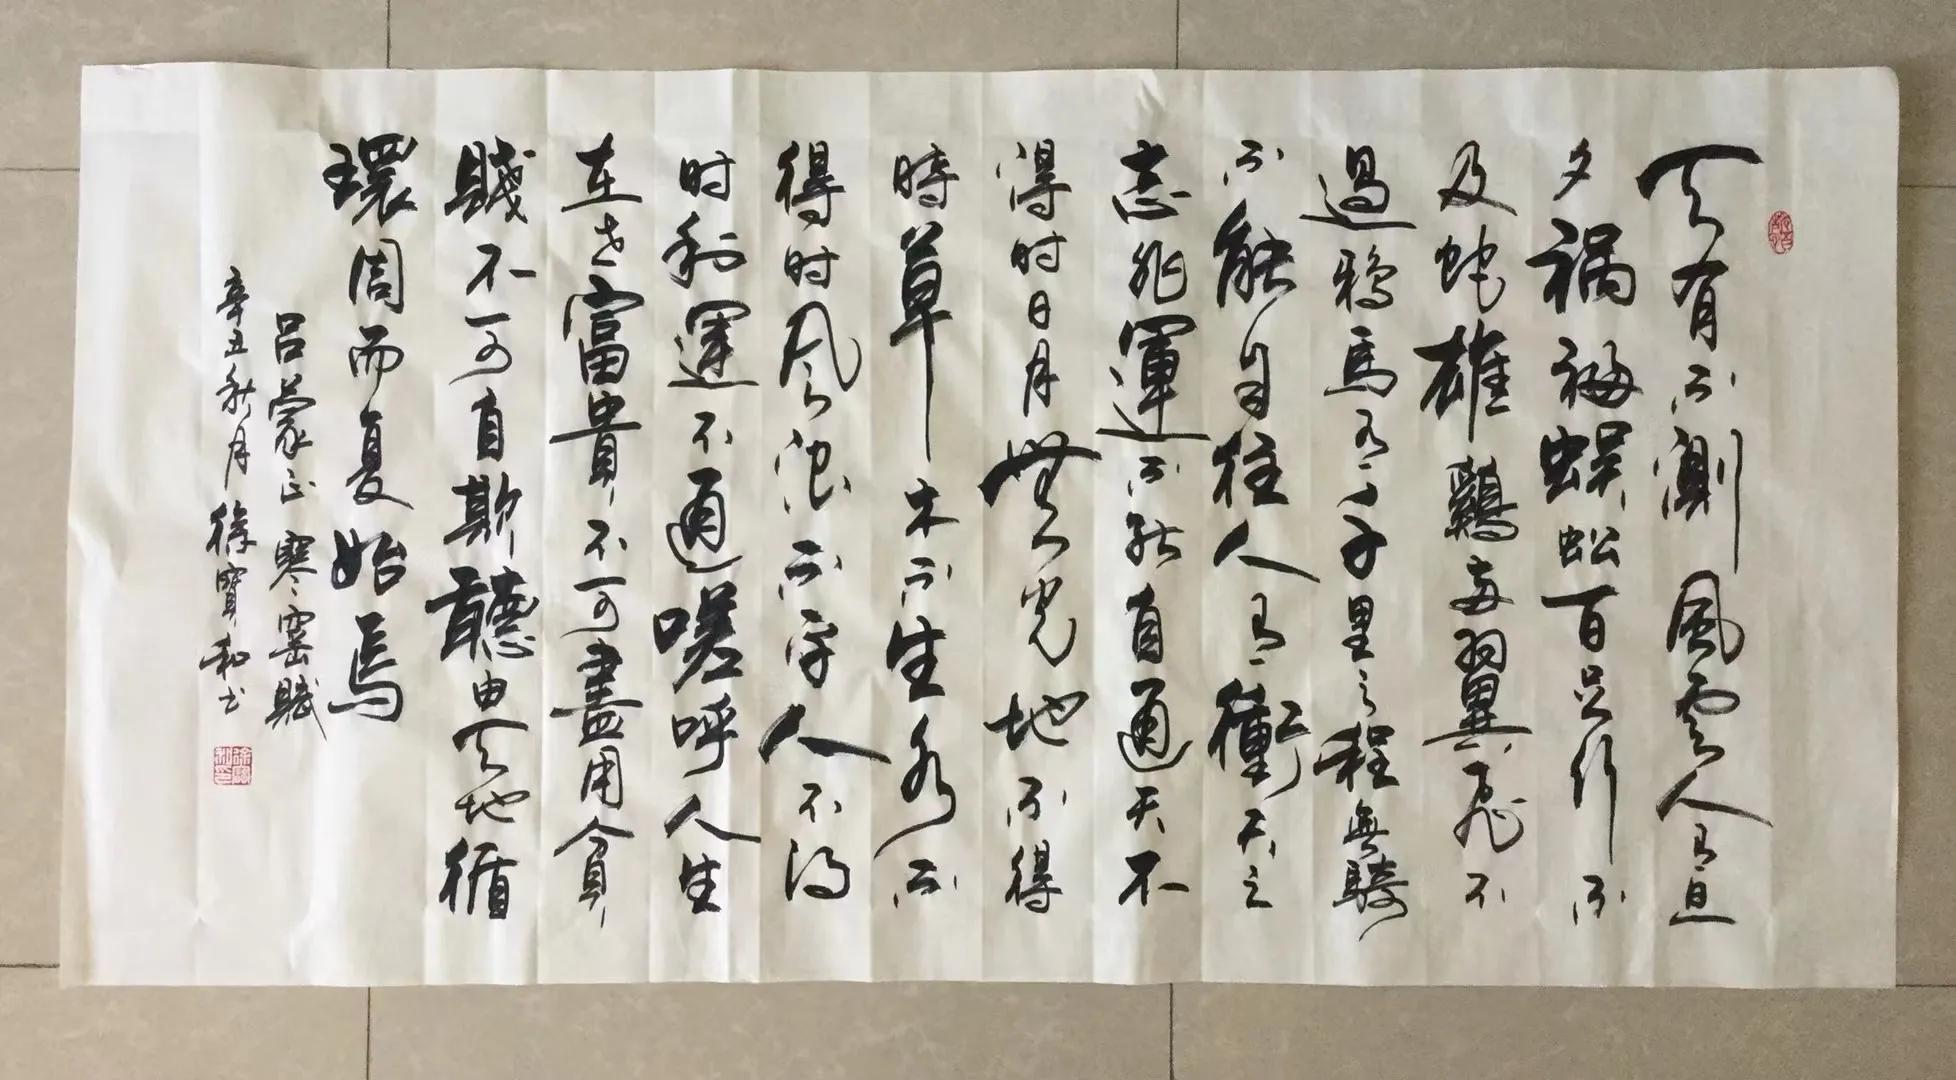 天有不測風雲人有旦
夕禍福蜈蚣百足行不
及蛇雄鷄兩翼飛不
過鴉馬有千里之程無騎
不能自往人有衝天之
志非運不能自通天不
得时日月無光地不得
時草木不生水不
得时風浪不平人不得
时利運不通嗟呼人生
在世富貴不可盡用貪
賤不可自欺聽由天地循
環周而复始焉
吕蒙正寒窑賦
辛丑秋月徐寶利书